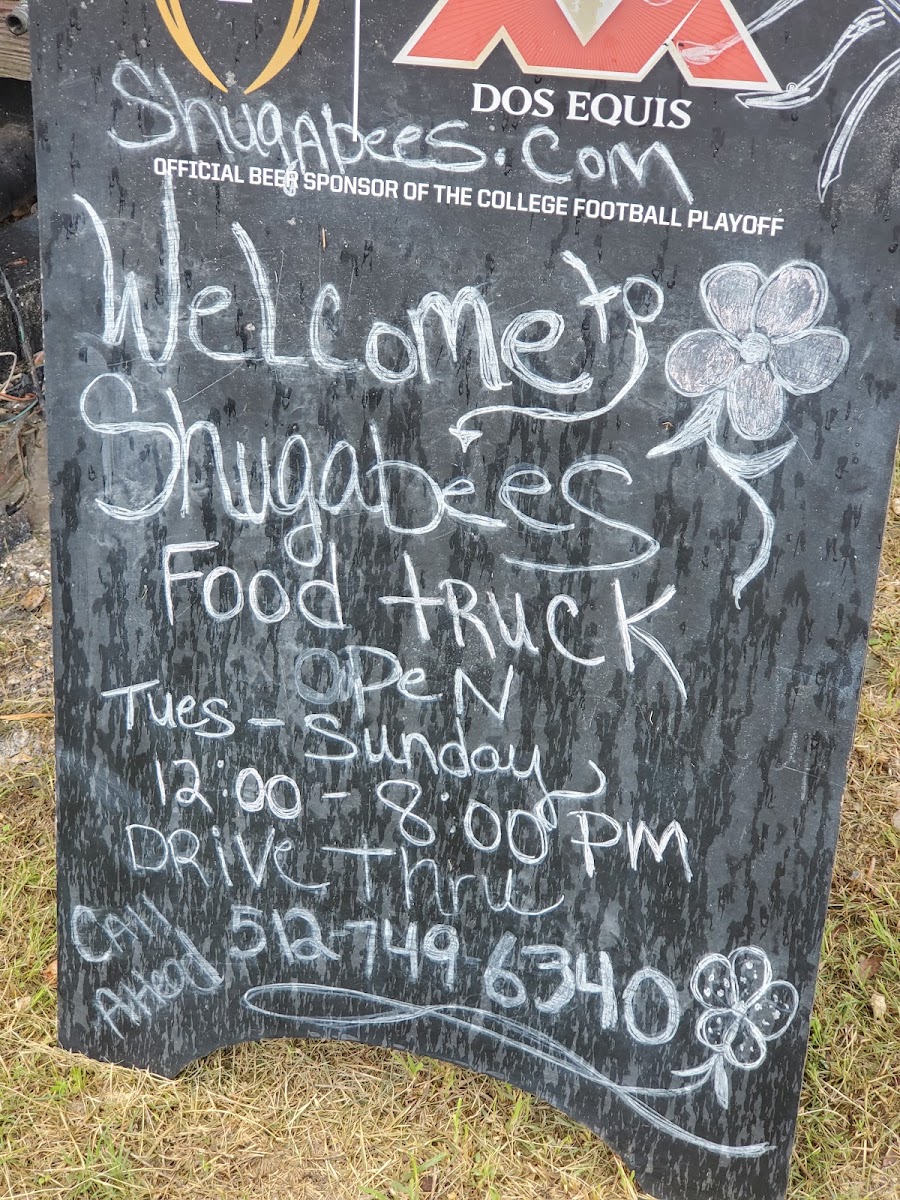 DOS EQUIS
ShugAbees.Com
OFFICIAL BEER SPONSOR OF THE COLLEGE FOOTBALL PLAYOFF
WeLcome to
Shugabees
Food tRUCK
OPeN
Tues - Sunday
12:00 - 8:00 PM
DRive Thru
CAll Ahead 512-749-6340